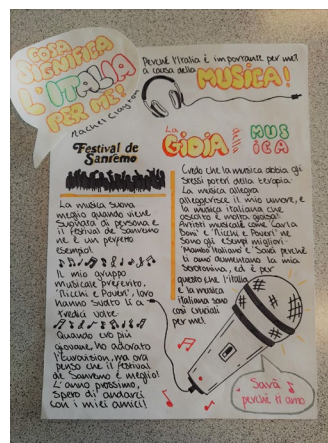 COSA
SIGNIFICA
L'ITALIA
PER ME?
Rachel Clayton
Perché l'Italia è importante per me?
a causa della MUSICA!
Festival de
Sanremo
La musica suona
meglio quando viene
suonata di persona e
il Festival de Sanremo
ne è un perfetto
esempio!
Il mio gruppo
musicale preferito,
'Ricchi e Poveri', loro
hanno suonato lì
tredici volte.
Quando ero più
giovane, ho adorato
l'Eurovision, ma ora
penso che il festival
de Sanremo è meglio!
L'anno prossimo,
spero di andarci
con i miei amici!
La GIOIA della MUSICA
Credo che la musica abbia gli
stessi poteri della terapia.
La musica allegra
alleggerisce il mio umore, e
la musica italiana che
ascolto è molta gioiosa!
Artisti musicale come 'Carla
Boni' e 'Ricchi e Poveri' ne
sono gli esempi migliori.
'Mambo Italiano' e 'Sarà perché
ti amo' aumentano la mia
serotonina, ed è per
questo che l'Italia
e la musica
italiana sono
così cruciali
per me!
Sarà
perché ti amo